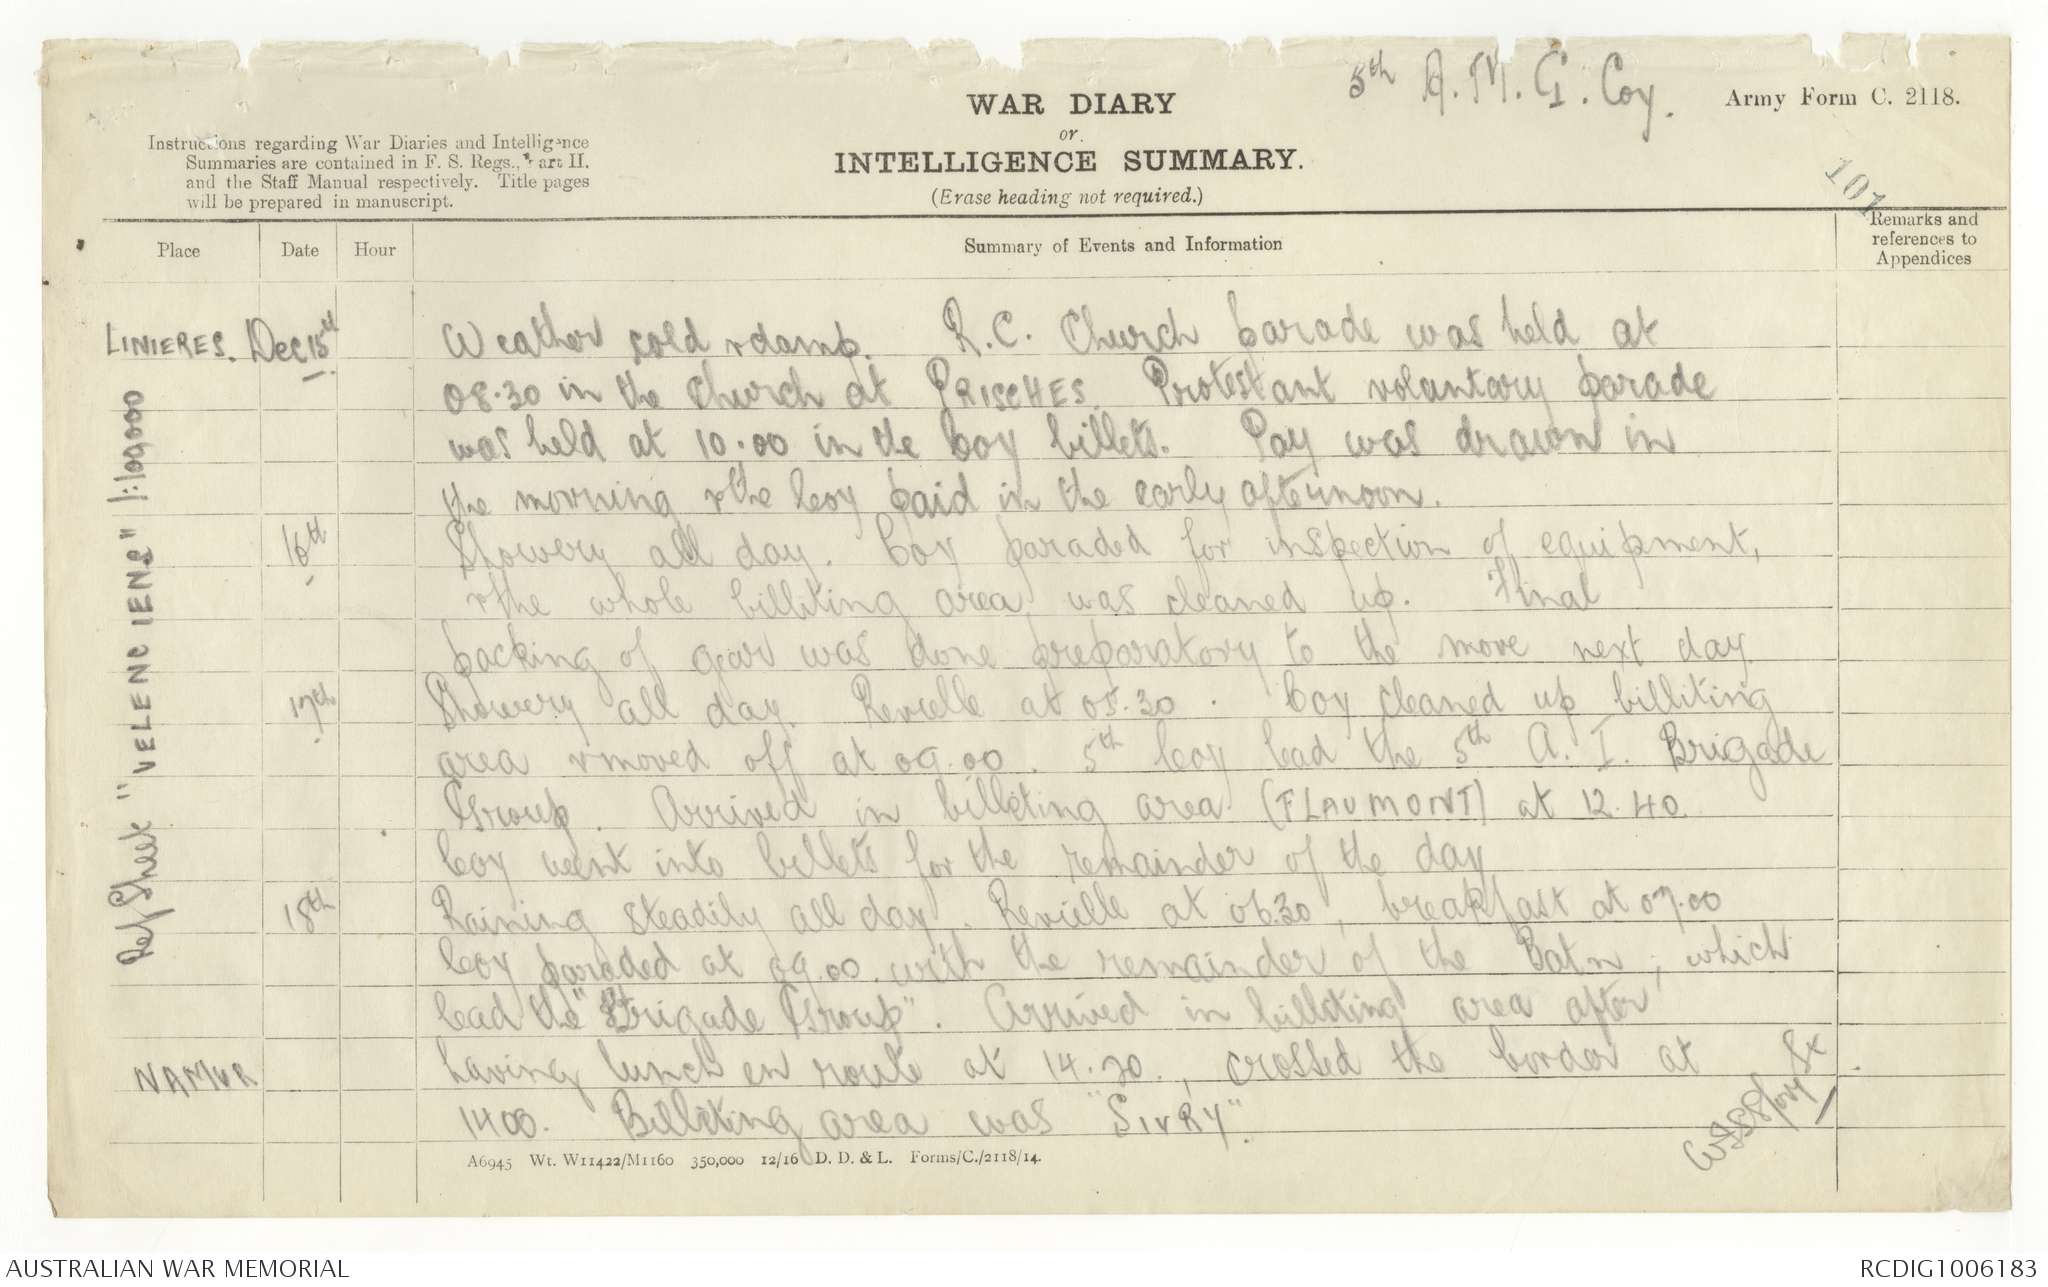 5th A.M.G.Coy.
WAR DIARY
or
INTELLIGENCE SUMMARY.
(Erase heading not required.)
Army Form C. 2118.
Instructions regarding War Diaries and Intelligence
Summaries are contained in F. S. Regs., Part II.
and the Staff Manual respectively. Title pages
will be prepared in manuscript.
101
Place
Date
Hour
Summary of Events and Information
Remarks and
references to
Appendices
Ref Sheet "VELENCIENS" 1:100,000
LINIERES. Dec 15th Weather cold & damp. R.C. Church parade was held at
08.30 in the Church at PRISCHES. Protestant voluntary parade
was held at 10.00 in the Coy billets. Pay was drawn in
the morning & the Coy paid in the early afternoon.
16th Showery all day. Coy paraded for inspection of equipment,
& the whole billiting area was cleaned up. Final
packing of gear was done preparatory to the move next day.
17th Showery all day. Revielle at 05.30. Coy cleaned up billiting
area & moved off at 09.00. 5th Coy lead the 5th A. I. Brigade
Group. Arrived in billiting area (FLAUMONT) at 12.40
Coy went into billets for the remainder of the day
18th Raining steadily all day. Revielle at 06.30, breakfast at 07.00
Coy paraded at 09.00 with the remainder of the Batn, which
lead the "Brigade Group". Arrived in billiting area after
NAMUR having lunch en route at 14.20, crossed the border at
1400. Billiting area was "SIVRY".
A6945 Wt. W11422/M1160 350,000 12/16 D. D. & L. Forms/C./2118/14.
AUSTRALIAN WAR MEMORIAL
RCDIG1006183